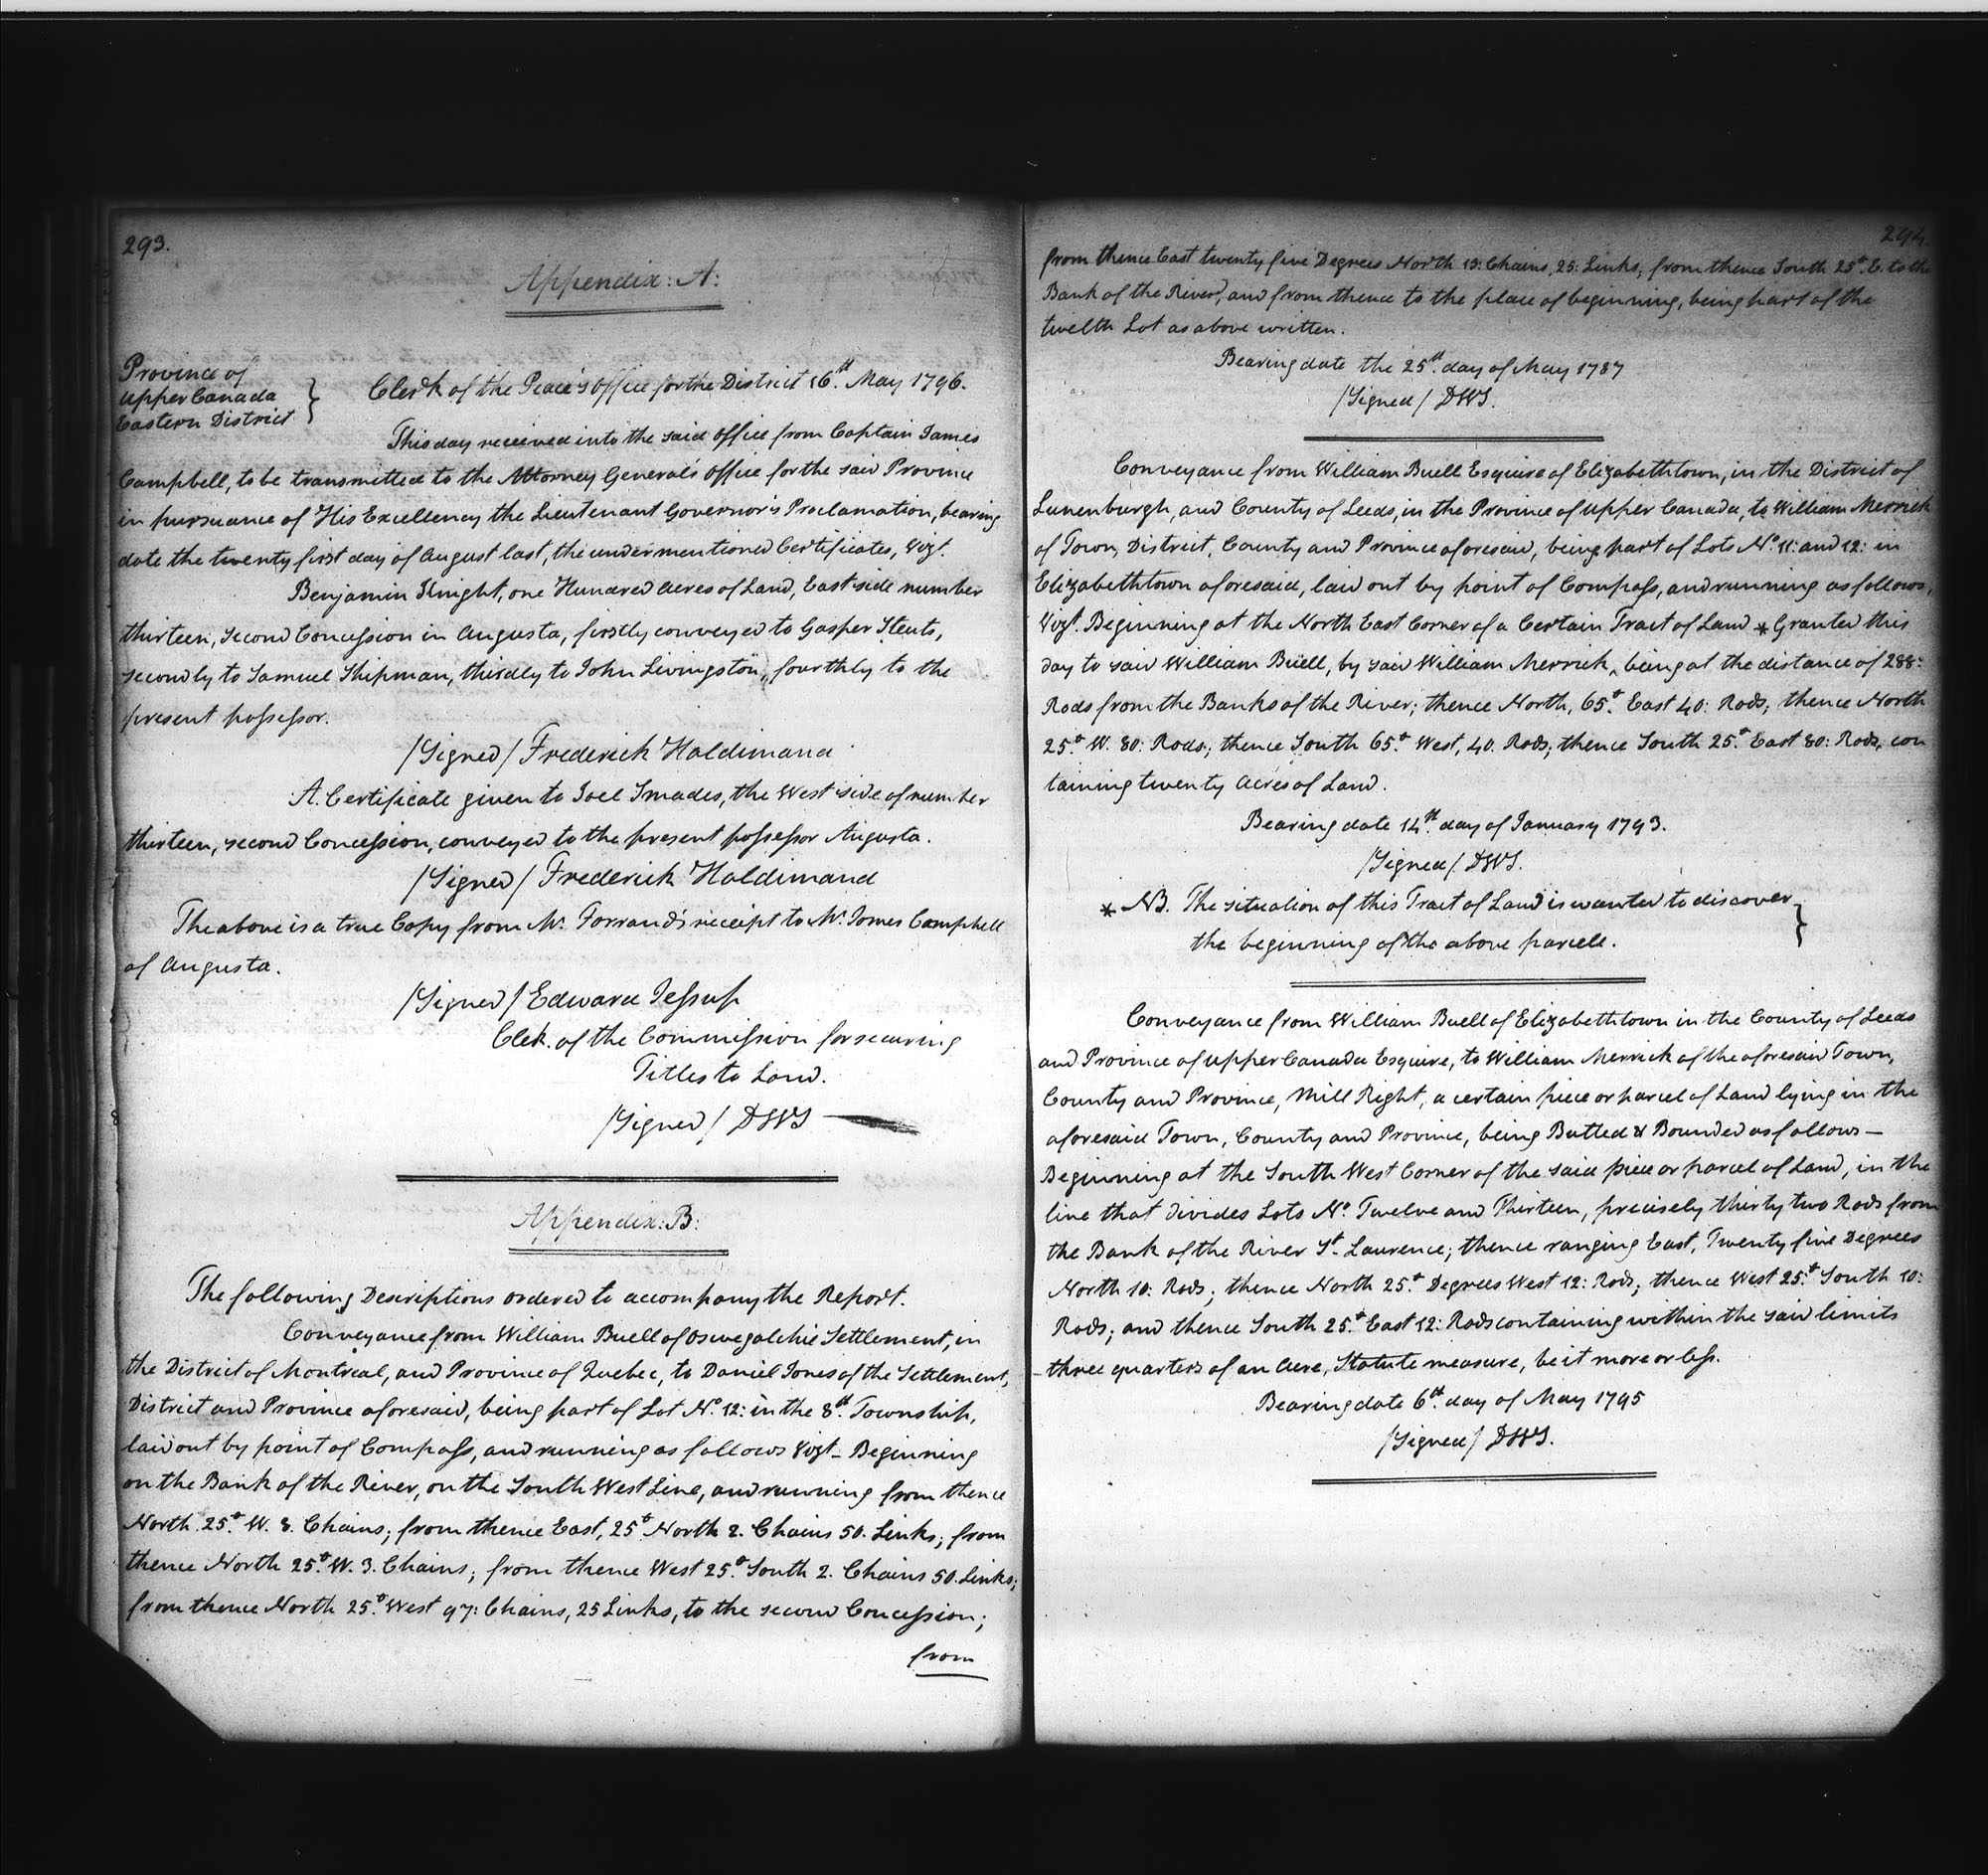 293.
Appendix: A:
Province of
Upper Canada
Eastern District }
Clerk of the Peace's Office for the District 16th. May 1796.
This day received into the said Office from Captain James
Campbell, to be transmitted to the Attorney General's Office for the said Province
in pursuance of His Excellency the Lieutenant Governor's Proclamation, bearing
date the twenty first day of August last, the undermentioned Certificates, Vizt.
Benjamin Knight, one Hundred Acres of Land, East side number
thirteen, second Concession in Augusta, firstly conveyed to Gasper Steuts,
secondly to Samuel Shipman, thirdly to John Livingston, fourthly to the
present possessor.
/Signed/ Frederick Haldimand
A Certificate given to Joel Smades, the West side of number
thirteen, second Concession, conveyed to the present possessor Augusta.
/Signed/ Frederick Haldimand
The above is a true Copy from Mr. Farrand's receipt to Mr. James Campbell
of Augusta.
/Signed/ Edward Jessup
Clek. of the Commission for securing
Titles to Land.
/Signed/ DWS
Appendix: B:
The following Descriptions ordered to accompany the Report.
Conveyance from William Buell of Oswegatchie Settlement, in
the District of Montreal, and Province of Quebec, to Daniel Jones of the Settlement,
District and Province aforesaid, being part of Lot No. 12: in the 8th. Township,
laid out by point of Compass, and running as follows Vizt - Beginning
on the Bank of the River, on the South West Line, and running from thence
North 25.d W. 8. Chains; from thence East, 25d North 2. Chains 50. Links; from
thence North 25.d W. 3. Chains; from thence West 25.d South 2. Chains 50. Links;
from thence North 25.d West 97: Chains, 25 Links, to the second Concession;
from
294.
from thence East twenty five Degrees North 13: Chains, 25: Links; from thence South 25d. E. to the
Bank of the River, and from thence to the place of beginning, being part of the
twelth Lot as above written.
Bearing date the 25th. day of May 1787
/Signed/ DWS.
Conveyance from William Buell Esquire of Elizabethtown, in the District of
Lunenburgh, and County of Leeds, in the Province of Upper Canada, to William Merrick
of Town, District, County and Province aforesaid, being part of Lots No. 11: and 12: in
Elizabethtown aforesaid, laid out by point of Compass, and running as follows,
Vizt. Beginning at the North East Corner of a Certain Tract of Land * Granted this
day to said William Buell, by said William Merrick, being at the distance of 288:
Rods from the Banks of the River; thence North, 65.d East 40: Rods; thence North
25.d W. 80: Rods; thence South 65.d West, 40. Rods; thence South 25.d East 80: Rods, con
taining twenty Acres of Land.
Bearing date 14th. day of January 1793.
/Signed/ DWS.
* NB. The situation of this Tract of Land is wanted to discover
the beginning of the above parcele. }
Conveyance from William Buell of Elizabethtown in the County of Leeds
and Province of Upper Canada Esquire, to William Merrick of the aforesaid Town,
County and Province, Mill Right, a certain piece or parcel of Land lying in the
aforesaid Town, County and Province, being Butted & Bounded as follows —
Beginning at the South West Corner of the said piece or parcel of Land, in the
line that divides Lots No. Twelve and Thirteen, precisely thirty two Rods from
the Bank of the River St. Laurence; thence ranging East, Twenty five Degrees
North 10: Rods; thence North 25.d Degrees West 12: Rods; thence West 25.d South 10:
Rods; and thence South 25.d East 12: Rods containing within the said limits
three quarters of an Acre, Statute measure, be it more or less.
Bearing date 6th. day of May 1795
/Signed/ DWS.